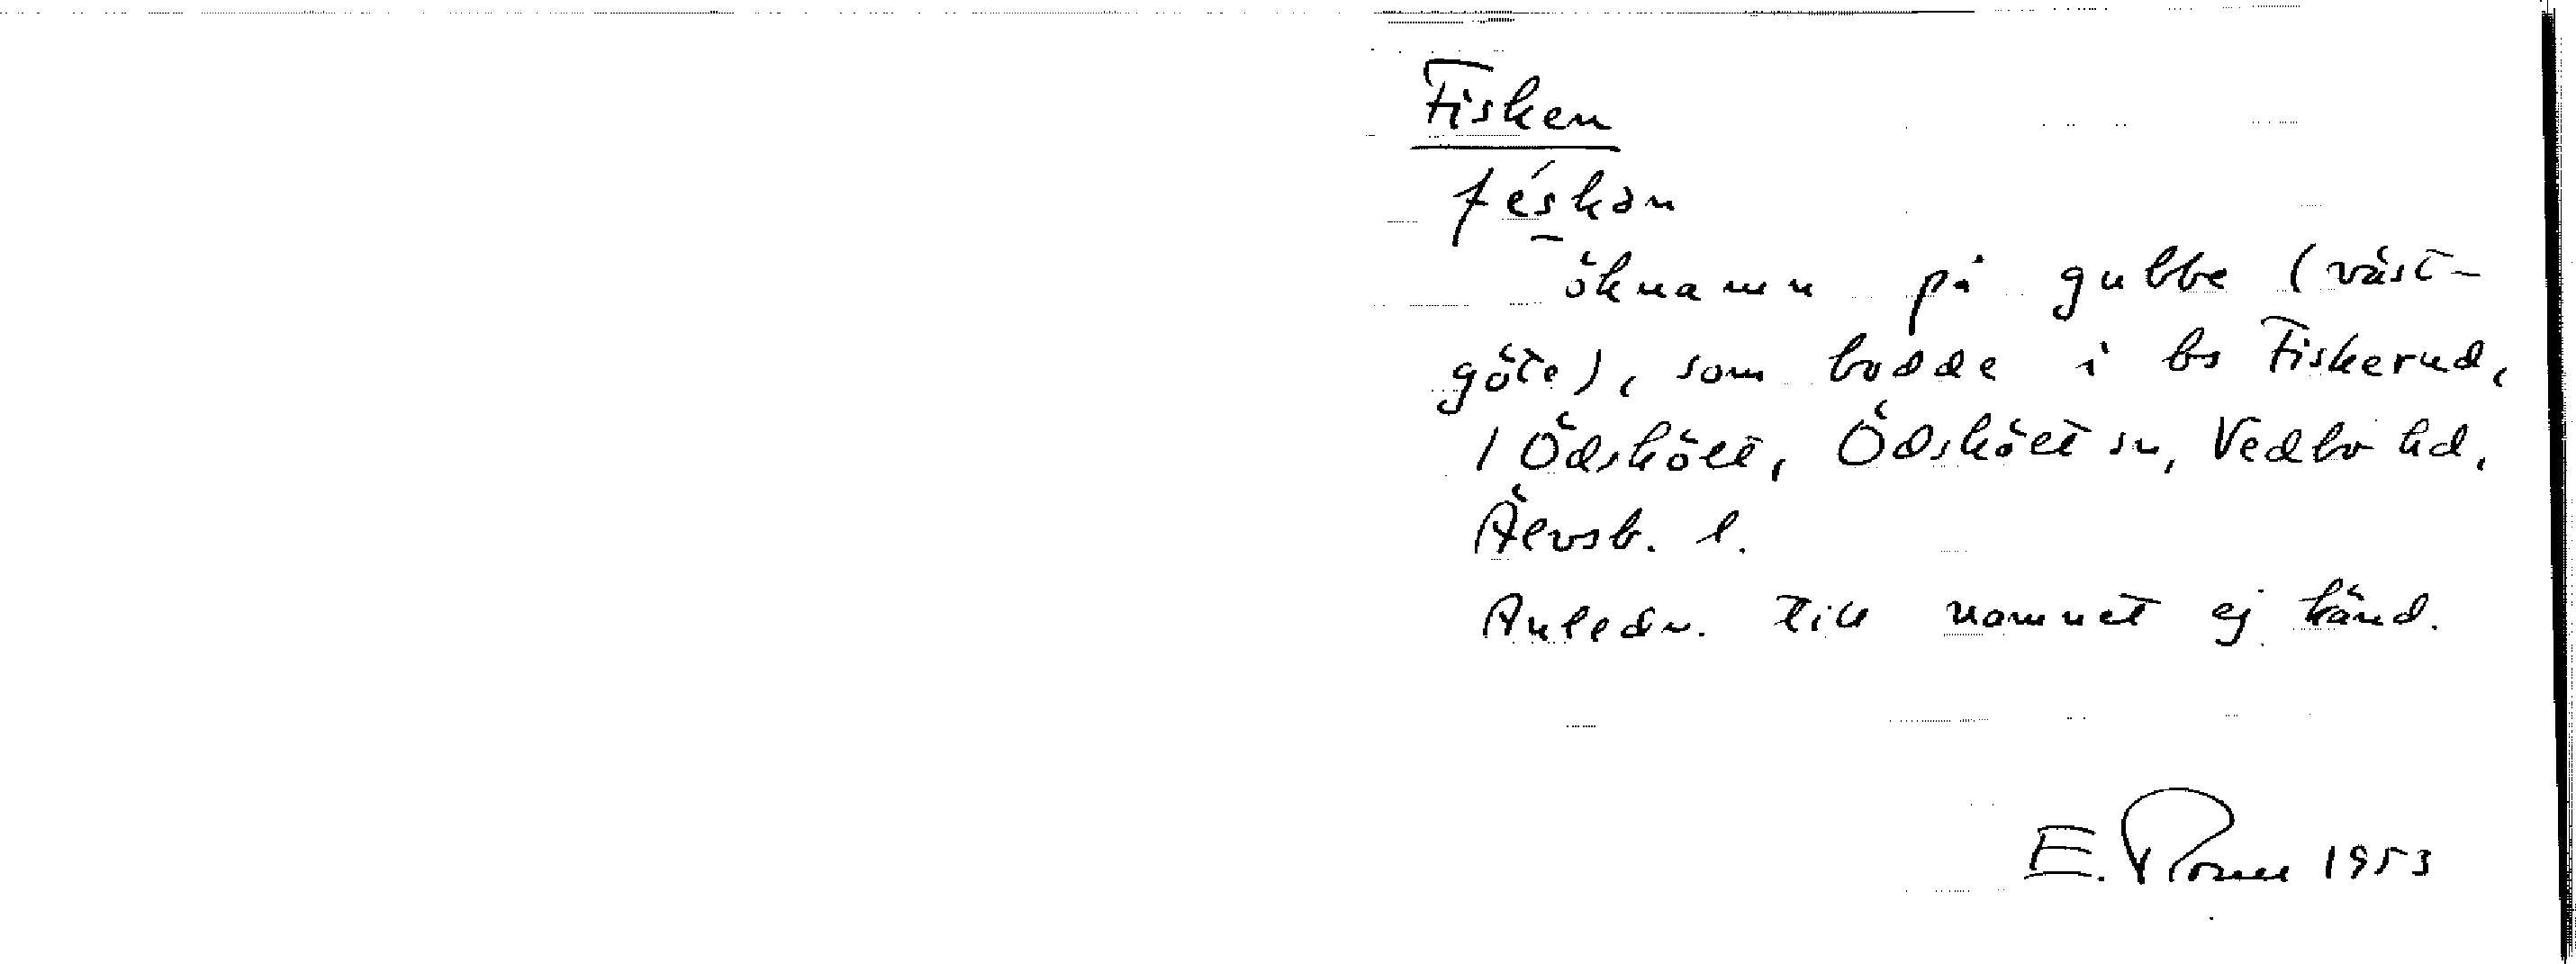 Fisken
féskən
öknamn på gubbe (väst-
göte), som bodde i bs Fiskerud,
1 Ödskölt, Ödskölt sn, Vedbo hd,
Älvsb. l.
Anledn. till namnet ej känd.
E. 1953